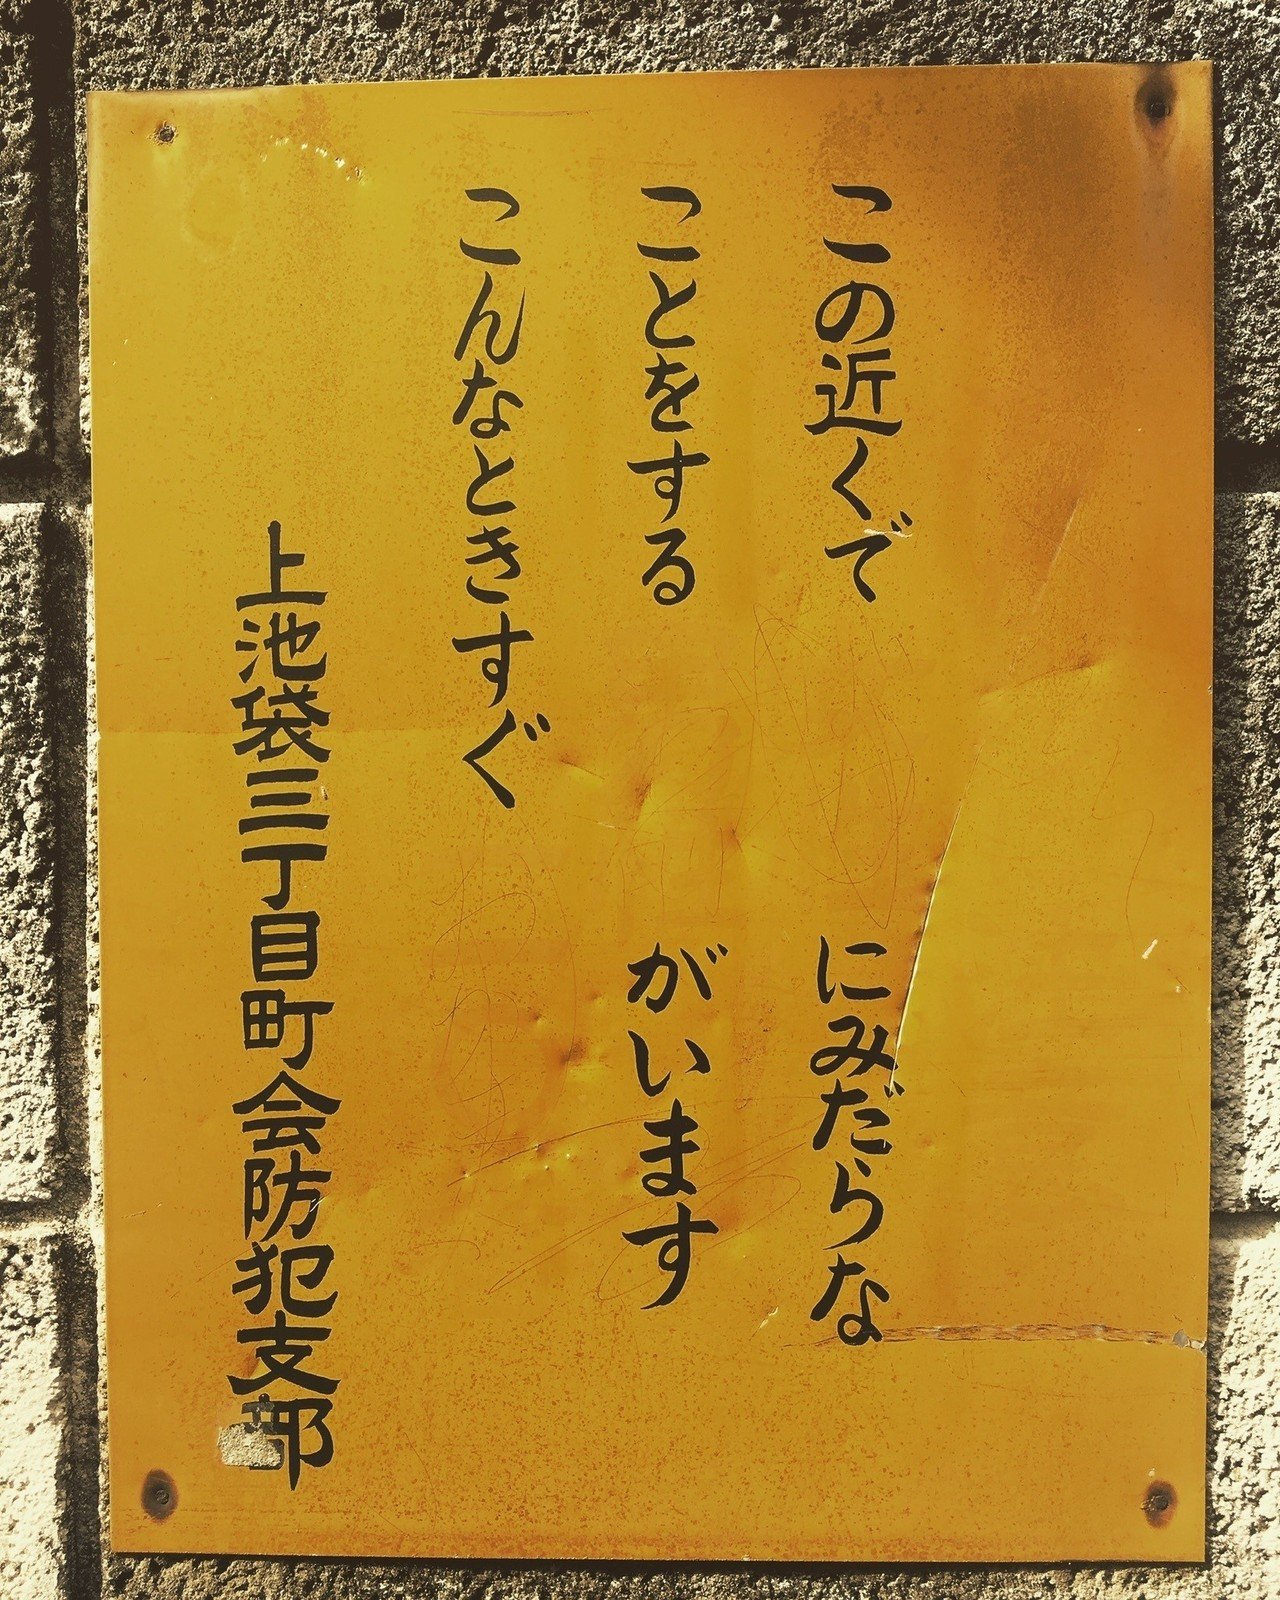 この近くで　にみだらな
ことをする　がいます
こんなときすぐ
上池袋三丁目町会防犯支部